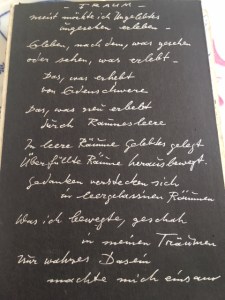 – TRAUM –
meist möchte ich Ungelebtes
ungesehen erleben –
Erleben, nach dem, was gesehen
oder sehen, was erlebt –
Das, was erhebt
von Erdenschwere
Das, was neu erlebt
durch Raumesleere
In leere Räume Gelebtes gelegt
Überfüllte Räume herausbewegt.
Gedanken verstecken sich
in leergelassenen Räumen
Was ich bewegte, geschah
in meinen Träumen
Nur wahres Dasein
machte mich einsam